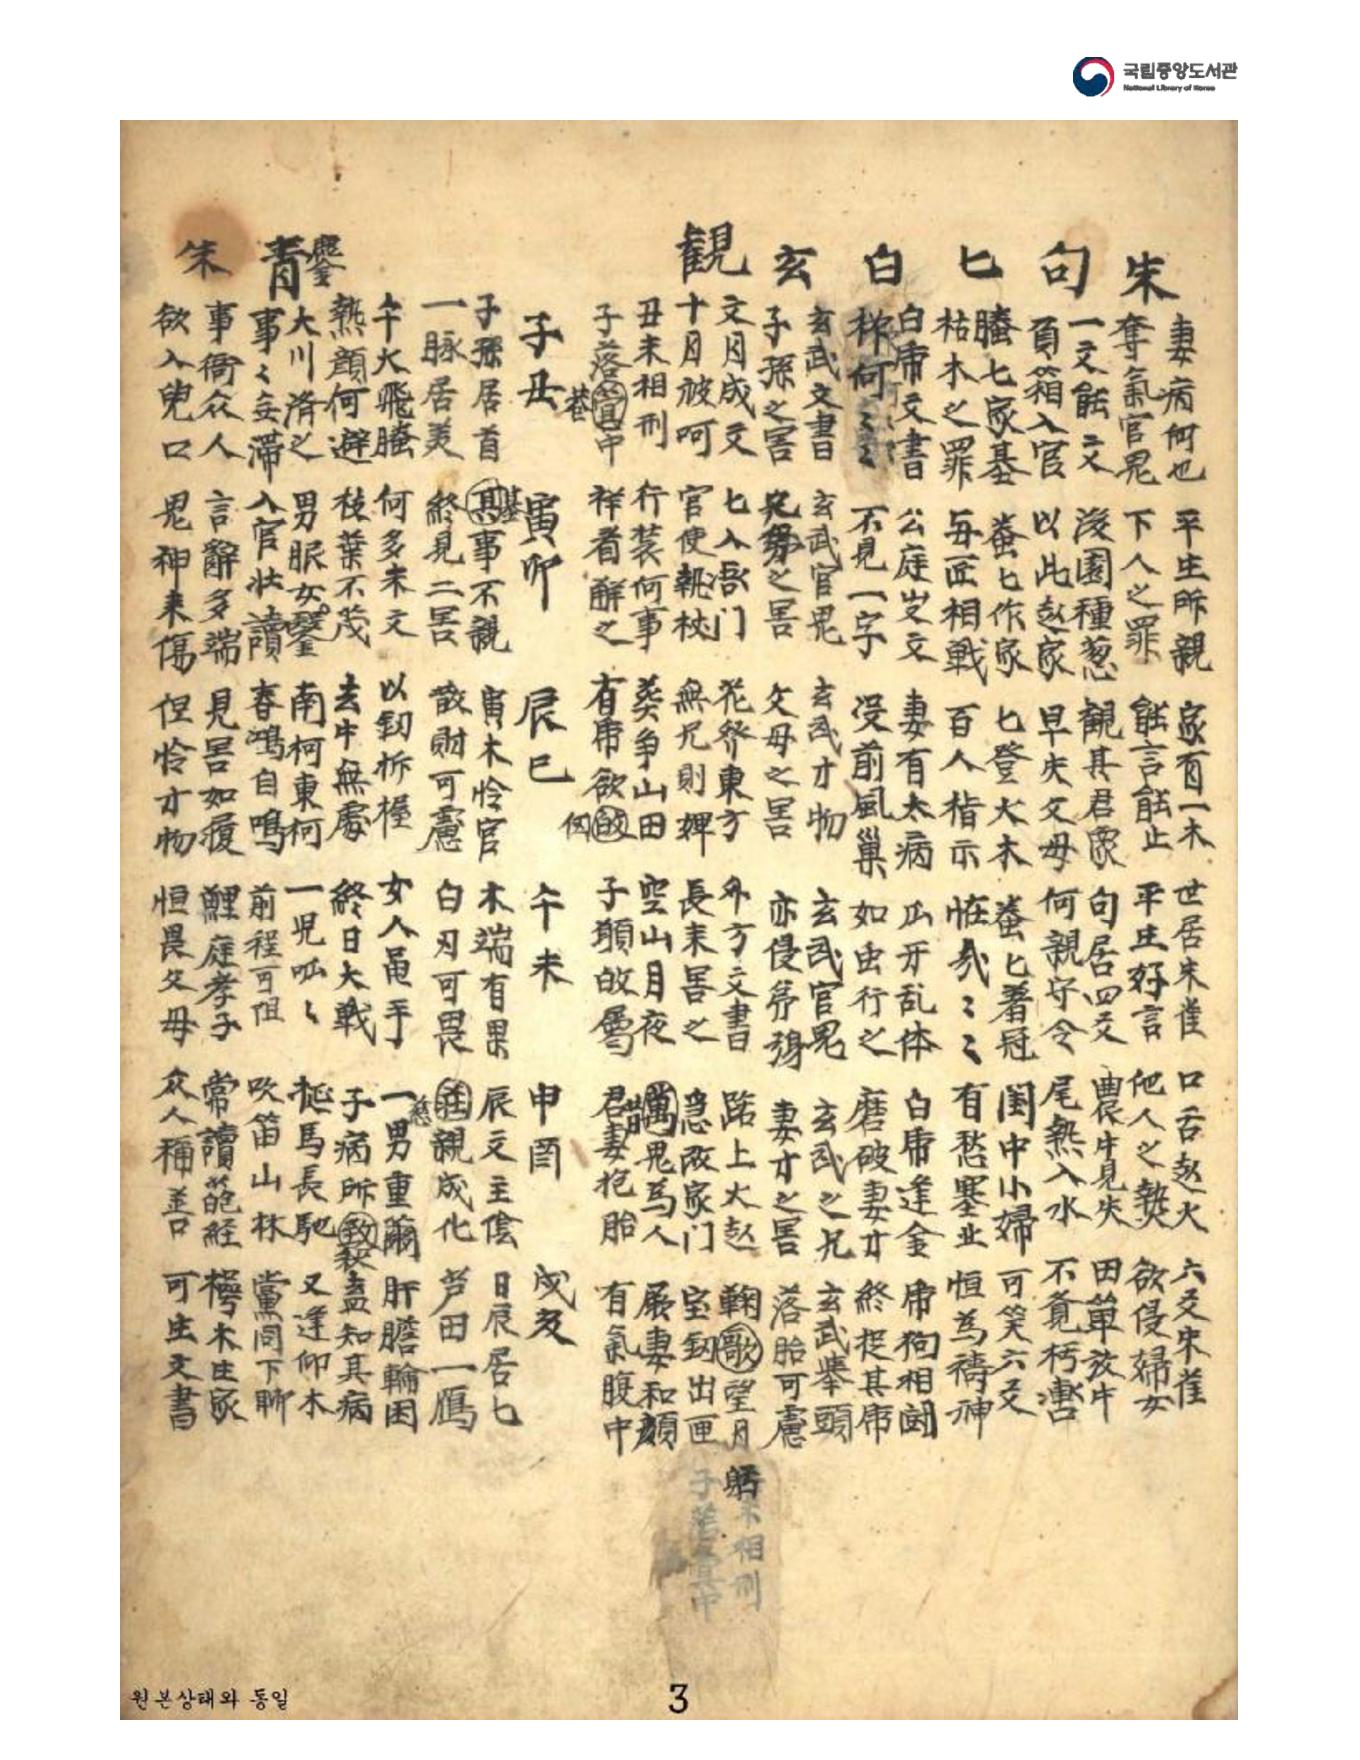 국립중앙도서관
National Library of Korea
朱
妻病何也 平生所親 家有一木 世居朱雀 口舌起火 六爻朱雀
奪氣官鬼 下人之罪 能言能止 平生好言 他人之獎 欲侵婦女
句
一爻能二爻 後園種葱 觀其君家 句居四爻 農牛見失 田單放牛
負箱入官 以此起家 早失父母 何親守令 尾熱入水 不覺朽
匕
騰七家基 蚕匕作家 匕登大木 蚕匕着冠 閨中小婦 可笑六爻
枯木之罪 每匠相戰 百人指示 怪哉ミミ 有愁塞北 恒爲禱神
白
白帝文書 公庭文 妻有大病 爪牙乱体 白帝逢金 帝狗相鬪
何 不見一字 没前風巢 如虫行之 磨破妻才 終捉其帝
玄
玄武文書 玄武官鬼 玄武才物 玄武官鬼 玄武之兄 玄武擧頭
子孫之害 之害 父母之害 亦侵第 妻才之害 落胎可慮
觀
文月成文 七入吾门 花發東方 外方文書 路上大起 鞠歌望月
十月被呵 官使執杖 無兄則 長未害之 急改家门 宝釼出匣
丑未相刑 行裝何事 葬爭山田 空山月夜 鬼爲人 展妻和顔
子落中 祥者解之 有帝欲 子 君妻抱胎 有氣腹中
躬
未相刑
子落中
子丑 寅卯 辰巳 午未 申酉 戌亥
子孫居首 事不親 寅木怜官 木端有果 辰文主陰 日辰居七
一脉居美 終見二害 散財可慮 白刃可畏 親成化 芦田一鴈
午火飛騰 何多未文 以釼折 女人甬手 一男重 肝膽輪囷
熱顔何避 枝葉不茂 去中無處 終日大戰 子病所 盖知其病
鑒
大川濟之 男眠女 南柯東柯 一児呱〻 馬長馳 又逢仰木
青
事〻妄滯 入官壯讀 春鳴自鳴 前程可阻 吹笛山林 黨同下
事衙众人 言辭多端 見害如履 鯉庭孝子 常讀葩経 木生家
朱
欲入兒口 鬼神来傷 但怜才物 恒畏父母 众人稱善 可生文書
원본상태와 동일
3